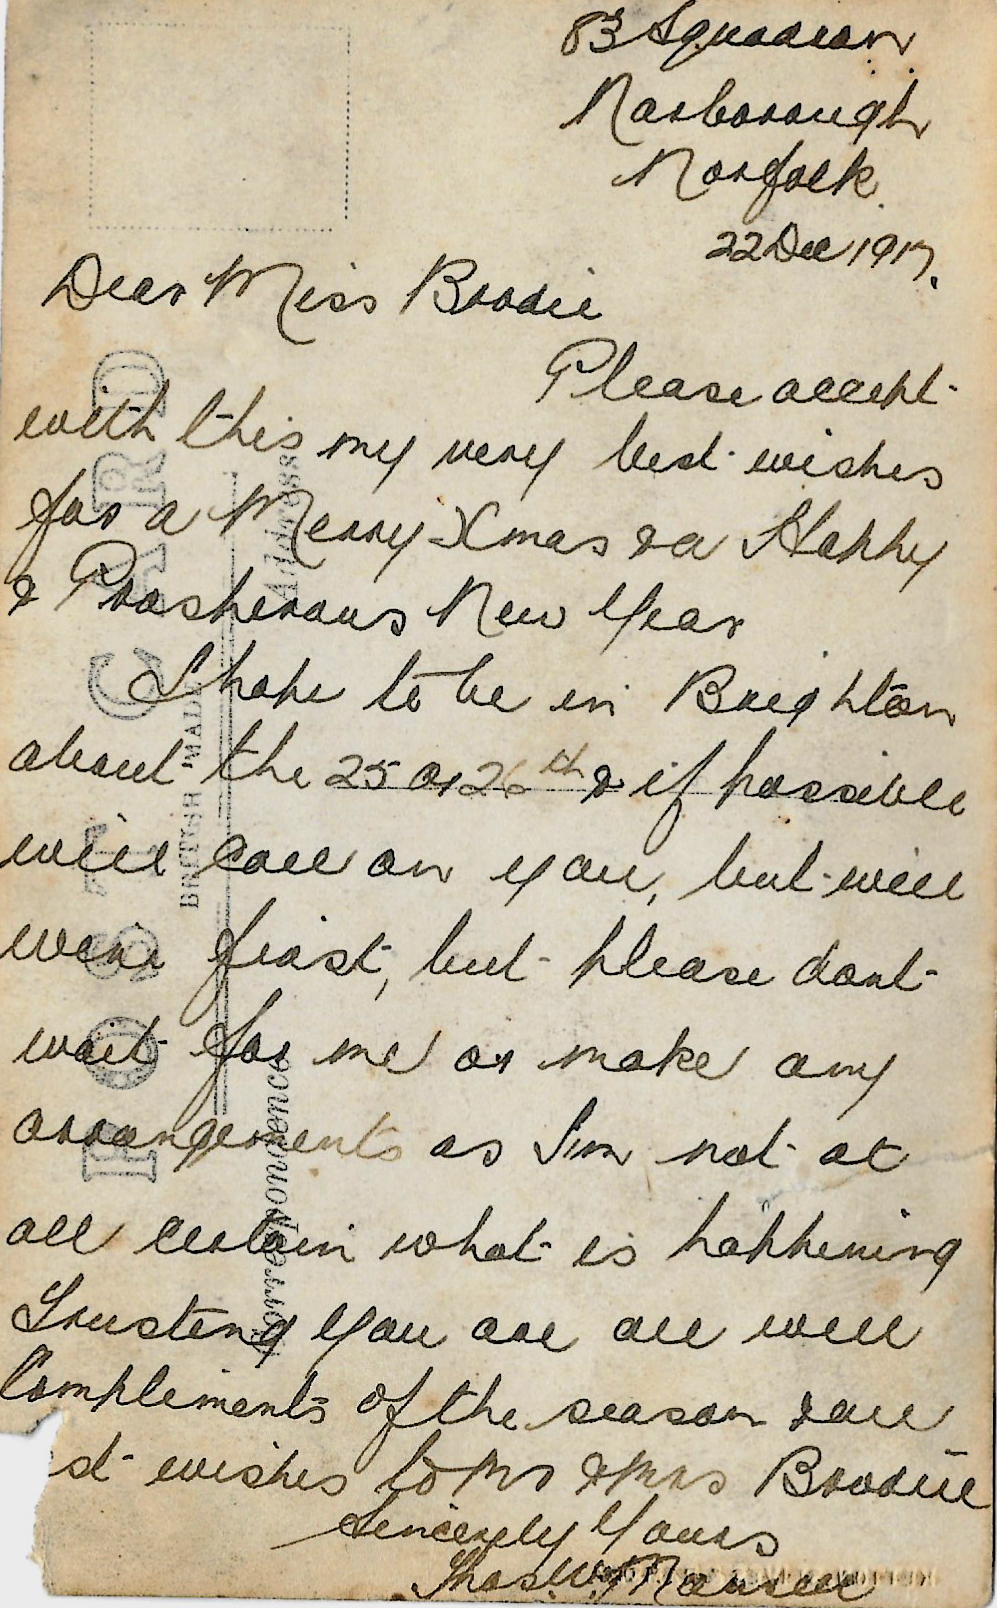 83 Squadron
Narborough
Norfolk.
22 Dec 1917.
Dear Miss Brodie
Please accept
with this my very best wishes
for a Merry Xmas & a Happy
& Prosperous New Year
I hope to be in Brighton
about the 25 or 26th & if possible
will call on you, but will
wire first, but please dont
wait for me or make any
arrangements as I'm not at
all certain what is happening
Trusting you are all well
Compliments of the season & all
st wishes to Mr & Mrs Brodie
Sincerely Yours
Thos W.
POST CARD
BRITISH MADE
Correspondence
Address